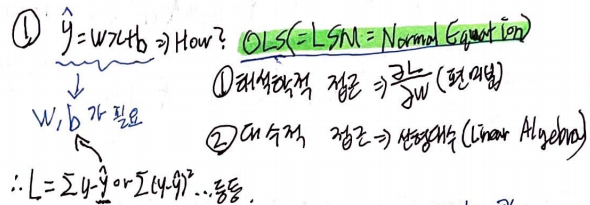 ① ŷ = wx+b ⇒ How? OLS(=LSM = Normal Equation)
① 해석학적 접근 ⇒ ∂L/∂w (편미분)
↓
w, b 가 필요
② 대수적 접근 ⇒ 선형대수 (Linear Algebra)
∴ L = Σ y-ŷ or Σ(y-ŷ)² ... 등등.